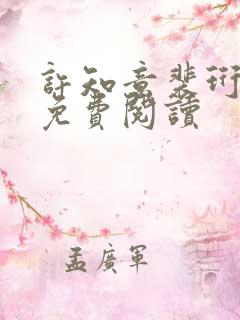 許知意裴珩
免費閱讀
孟廣軍